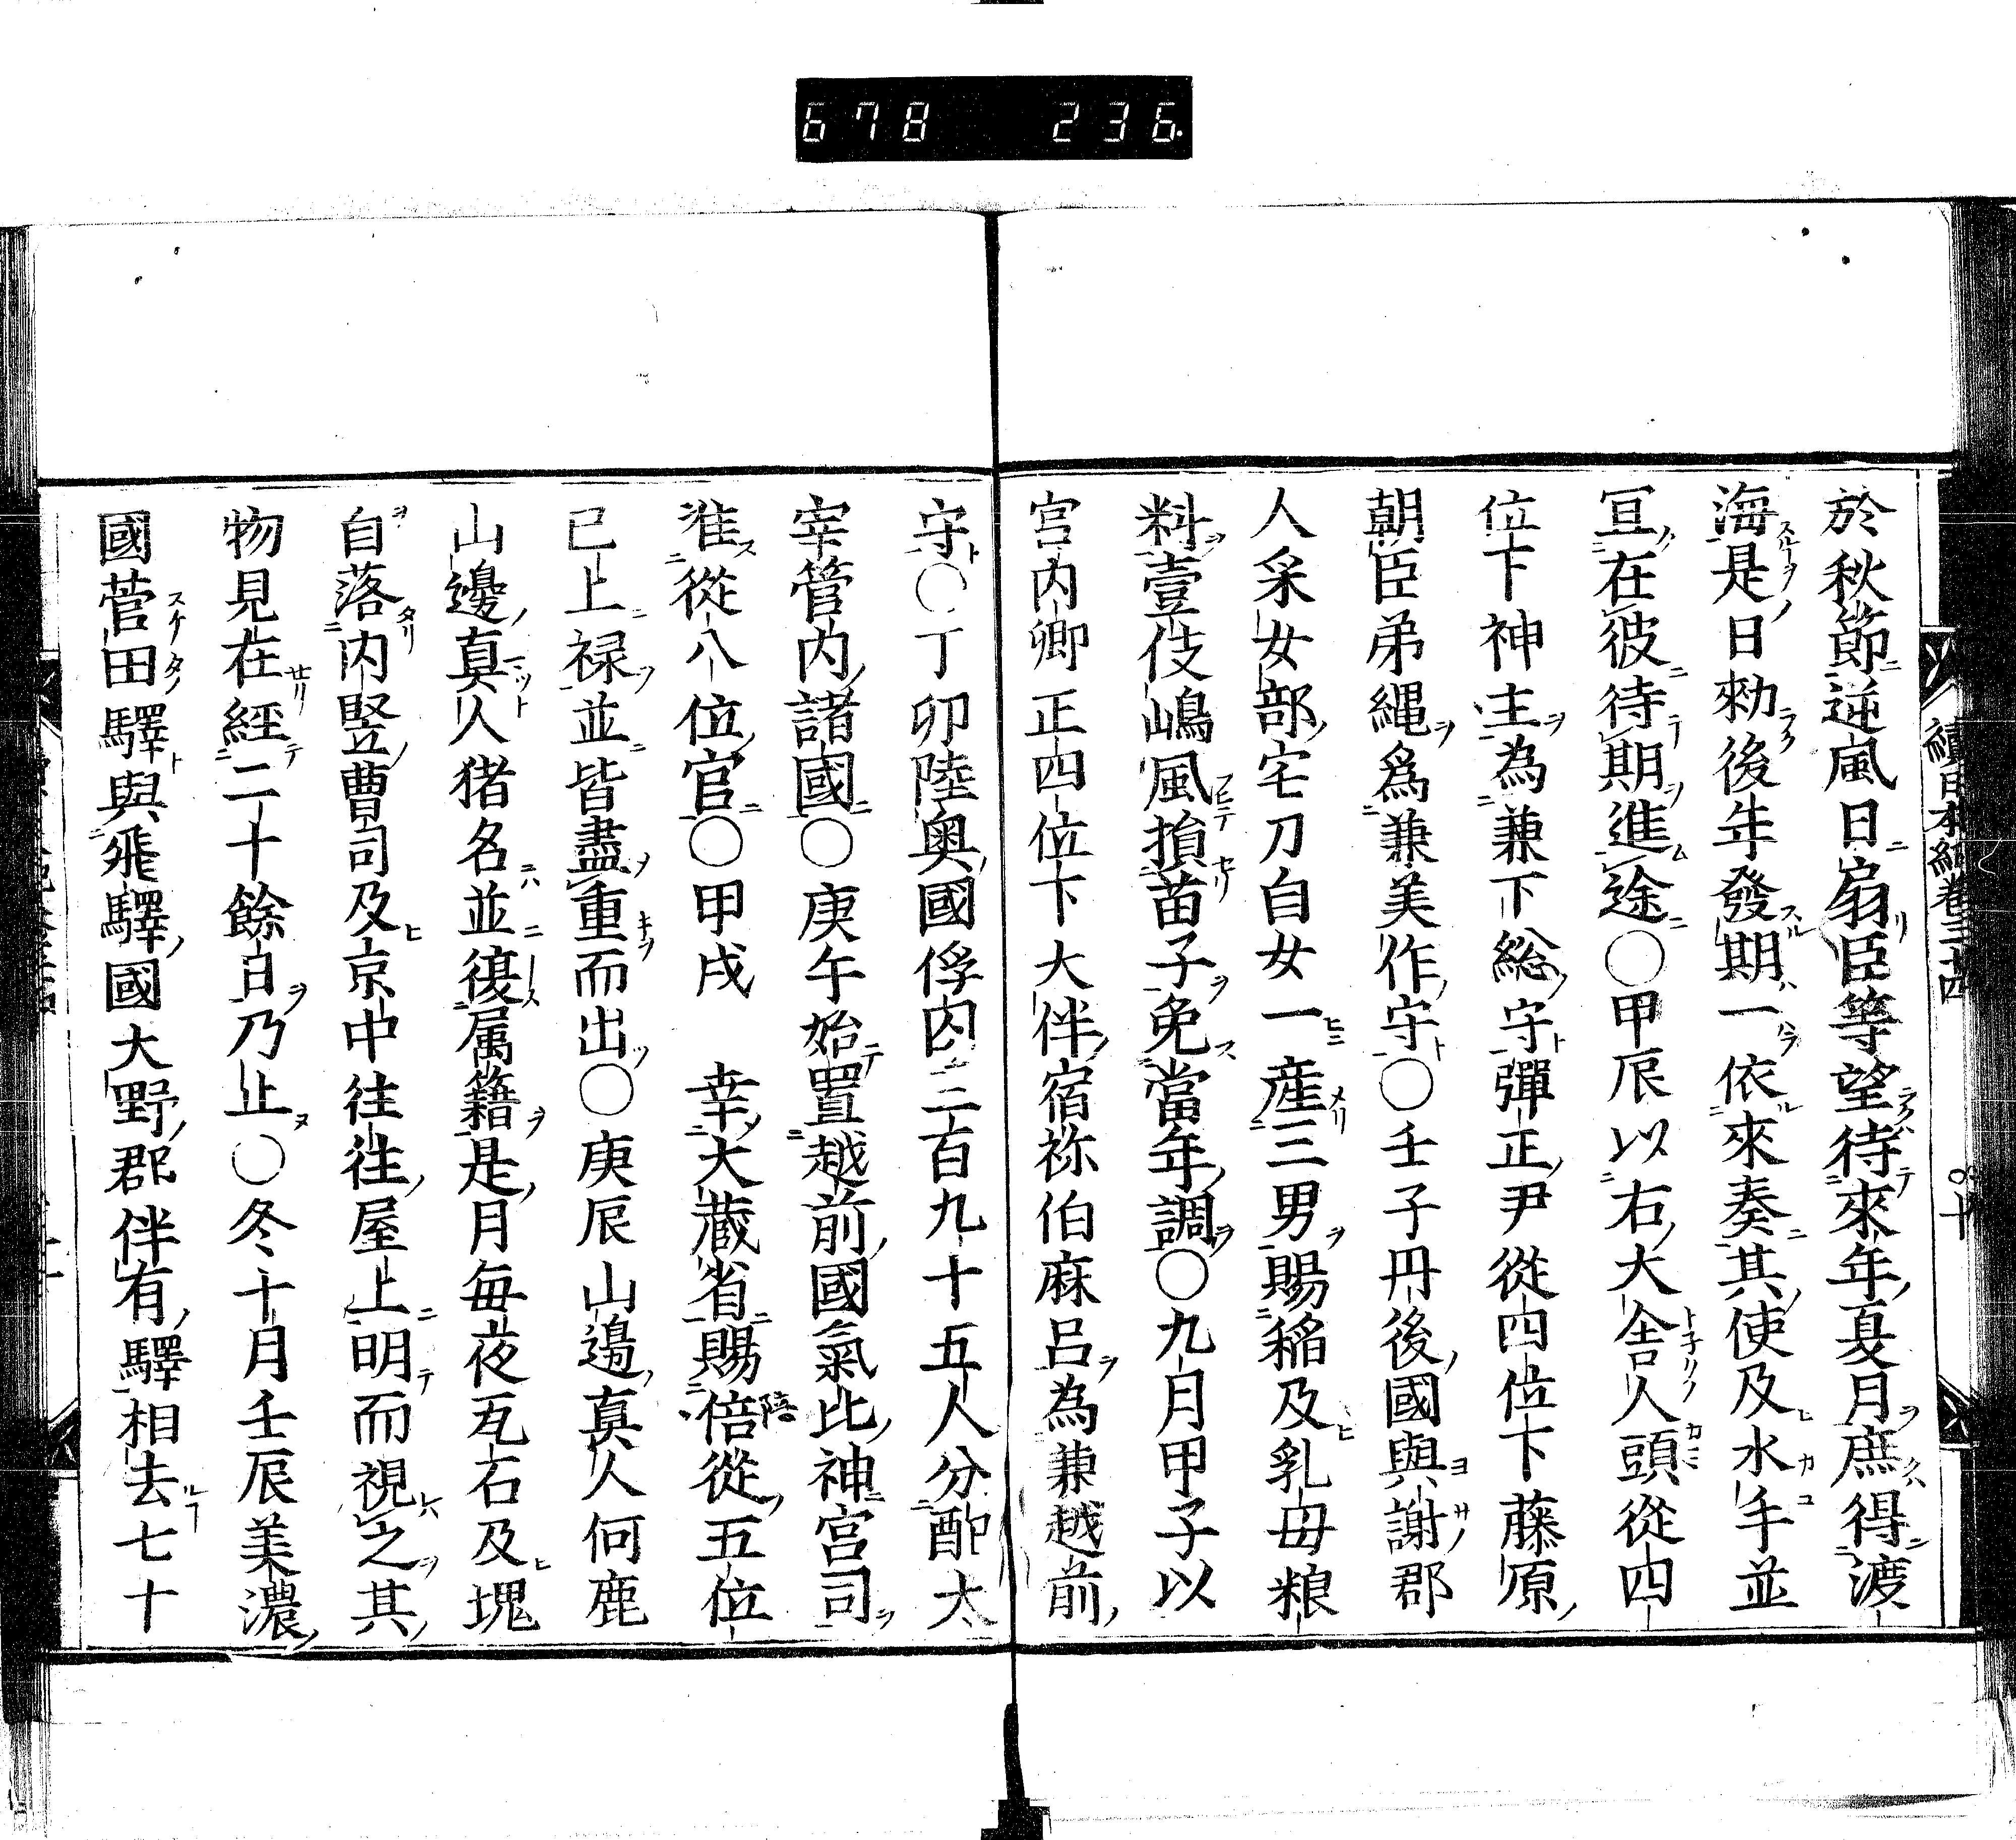 678 236.
續日本紀卷三十四 〇十
於秋節逆風日扇臣等望待來年夏月庶得渡
海是日勑後年發期一依來奏其使及水手並
宣在彼待期進途〇甲辰以右大舎人頭從四
位下神主為兼下総守彈正尹從四位下藤原
朝臣弟縄爲兼美作守〇壬子丹後國與謝郡
人采女部宅刀自女一産三男賜稲及乳母粮
料壹伎嶋風損苗子免當年調〇九月甲子以
宮内卿正四位下大伴宿祢伯麻呂為兼越前
守〇丁卯陸奥國俘囚三百九十五人分配太
宰管内諸國〇庚午始置越前國氣比神宮司
准從八位官〇甲戌 幸大蔵省賜倍從五位
已上禄並皆盡重而出〇庚辰山邊真人何鹿
山邊真人猪名並復属籍是月毎夜瓦石及塊
自落内竪曹司及京中往往屋上明而視之其
物見在經二十餘日乃止〇冬十月壬辰美濃
國菅田驛與飛驒國大野郡伴有驛相去七十